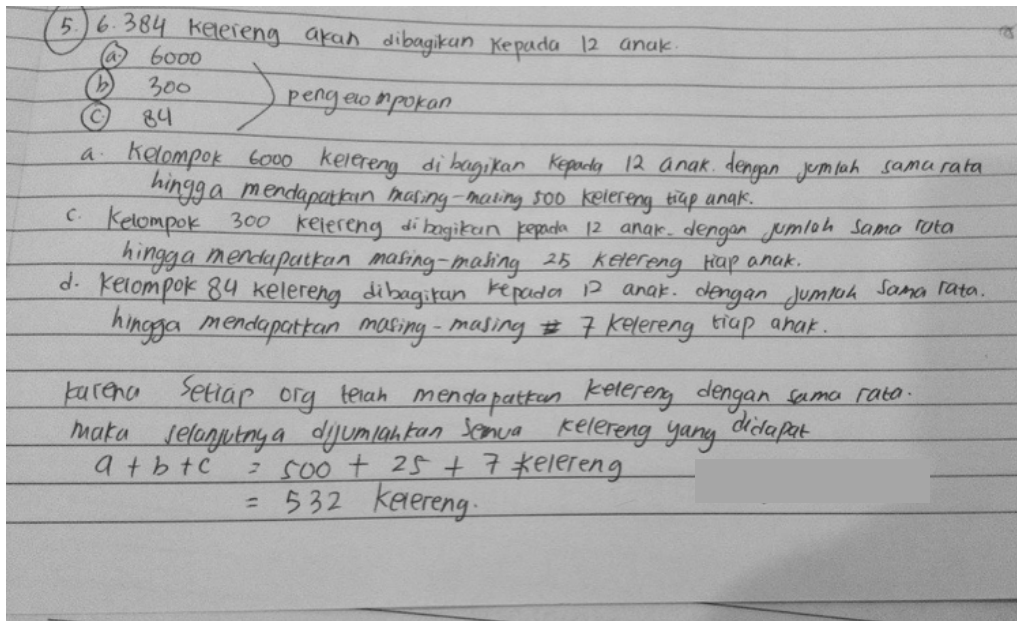 5. 6.384 kelereng akan dibagikan kepada 12 anak.
a. 6000
b 300
pengelompokan
c. 84
a. Kelompok 6000 kelereng dibagikan kepada 12 anak. dengan jumlah sama rata
hingga mendapatkan masing-masing 500 kelereng tiap anak.
c. Kelompok 300 kelereng dibagikan kepada 12 anak. dengan jumlah sama rata
hingga mendapatkan masing-masing 25 kelereng tiap anak.
d. Kelompok 84 kelereng dibagikan kepada 12 anak. dengan jumlah sama rata.
hingga mendapatkan masing-masing 7 kelereng tiap anak.
karena setiap org telah mendapatkan kelereng dengan sama rata.
maka selanjutnya dijumlahkan semua kelereng yang didapat
a + b + c = 500 + 25 + 7 kelereng
= 532 kelereng.